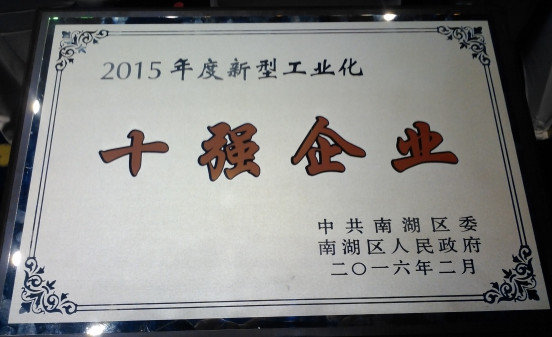 2015年度新型工业化
十强企业
中共南湖区委
南湖区人民政府
二〇一六年二月